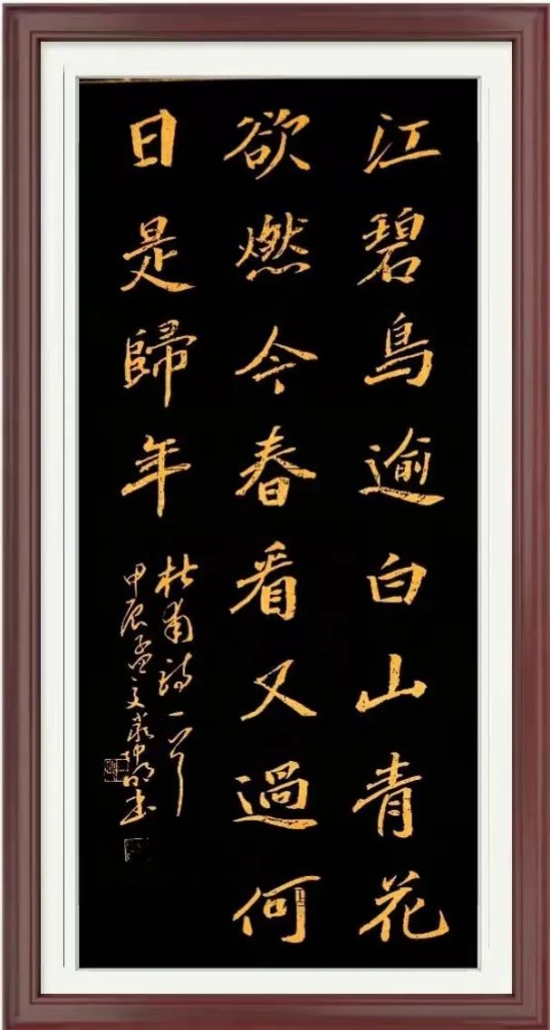 江碧鳥逾白山青花
欲燃今春看又過何
日是歸年
杜甫詩一首
甲辰孟